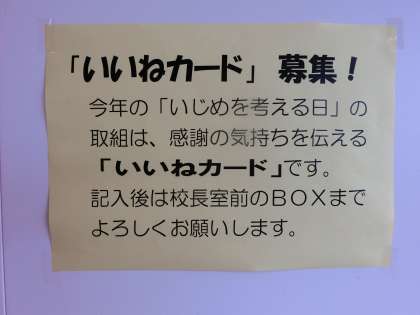 「いいねカード」 募集！
今年の「いじめを考える日」の
取組は、感謝の気持ちを伝える
「いいねカード」です。
記入後は校長室前のＢＯＸまで
よろしくお願いします。